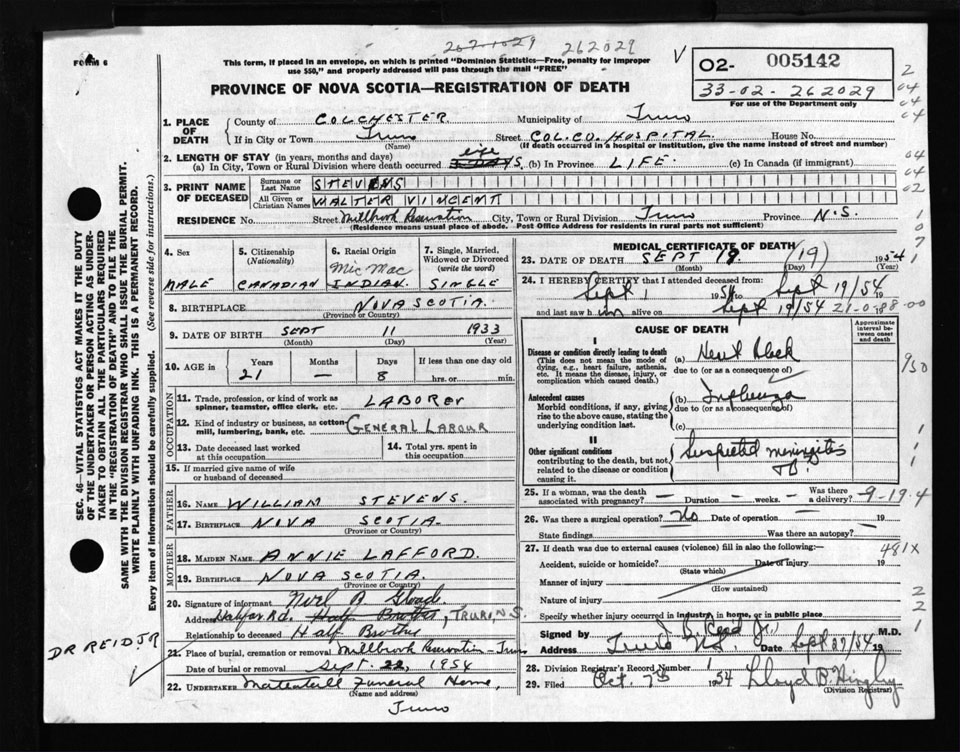 267-1029 262029
FORM 6
This form, if placed in an envelope, on which is printed "Dominion Statistics—Free, penalty for improper
use $50," and properly addressed will pass through the mail "FREE"
PROVINCE OF NOVA SCOTIA—REGISTRATION OF DEATH
V
02- 005142
33-02-262029
For use of the Department only
1. PLACE OF DEATH
County of COLCHESTER Municipality of Truro
If in City or Town Truro (Name) Street COL.CO. HOSPITAL. House No.
(If death occurred in a hospital or institution, give the name instead of street and number)
2. LENGTH OF STAY (in years, months and days)
(a) In City, Town or Rural Division where death occurred life (b) In Province LIFE. (c) In Canada (if immigrant)
3. PRINT NAME OF DECEASED
Surname or Last Name STEVENS
All Given or Christian Names WALTER VINCENT
RESIDENCE No. Street Millbrook Reservation City, Town or Rural Division Truro Province N.S.
(Residence means usual place of abode. Post Office Address for residents in rural parts not sufficient)
4. Sex MALE
5. Citizenship (Nationality) CANADIAN
6. Racial Origin Mic Mac INDIAN.
7. Single, Married, Widowed or Divorced (write the word) SINGLE
8. BIRTHPLACE NOVA SCOTIA.
(Province or Country)
9. DATE OF BIRTH SEPT 11 1933
(Month) (Day) (Year)
10. AGE in Years 21 Months — Days 8 If less than one day old hrs. or min.
OCCUPATION
11. Trade, profession, or kind of work as spinner, teamster, office clerk, etc. LABORER
12. Kind of industry or business, as cotton mill, lumbering, bank, etc. GENERAL LABOUR
13. Date deceased last worked at this occupation
14. Total yrs. spent in this occupation
15. If married give name of wife or husband of deceased
FATHER
16. NAME WILLIAM STEVENS.
17. BIRTHPLACE NOVA SCOTIA.
(Province or Country)
MOTHER
18. MAIDEN NAME ANNIE LAFFORD.
19. BIRTHPLACE NOVA SCOTIA.
(Province or Country)
20. Signature of informant Noel A Gloade
Address Halifax Rd. Half Brother, TRURO, N.S.
Relationship to deceased Half Brother
DR REID JR
21. Place of burial, cremation or removal Millbrook Reservation - Truro
Date of burial or removal Sept. 22, 1954
22. UNDERTAKER Funeral Home,
(Name and address)
Truro
MEDICAL CERTIFICATE OF DEATH
23. DATE OF DEATH SEPT 19. (19) 1954
(Month) (Day) (Year)
24. I HEREBY CERTIFY that I attended deceased from:
Sept 1 1954 to Sept 19/54 19
and last saw him alive on Sept 19/54 19
CAUSE OF DEATH
Approximate interval between onset and death
I
Disease or condition directly leading to death
(This does not mean the mode of dying, e.g., heart failure, asthenia, etc. It means the disease, injury, or complication which caused death.)
(a) Heart Block
due to (or as a consequence of)
Antecedent causes
Morbid conditions, if any, giving rise to the above cause, stating the underlying condition last.
(b) Influenza
due to (or as a consequence of)
(c)
II
Other significant conditions
contributing to the death, but not related to the disease or condition causing it.
Suspected meningitis
TB.
25. If a woman, was the death associated with pregnancy? — Duration — weeks. — Was there a delivery?
9-19-4
26. Was there a surgical operation? No Date of operation — 19
State findings Was there an autopsy? —
27. If death was due to external causes (violence) fill in also the following:—
481X
Accident, suicide or homicide? Date of injury 19
(State which)
Manner of injury
(How sustained)
Nature of injury
Specify whether injury occurred in industry, in home, or in public place
Signed by Reid Jr. M.D.
Address Truro N.S. Date Sept 27/54 19
28. Division Registrar's Record Number 1
29. Filed Oct. 7th 1954 Lloyd B.
(Division Registrar)
SEC. 46—VITAL STATISTICS ACT MAKES IT THE DUTY
OF THE UNDERTAKER OR PERSON ACTING AS UNDER-
TAKER TO OBTAIN ALL THE PARTICULARS REQUIRED
IN THE "REGISTRATION OF DEATH" AND TO FILE THE
SAME WITH THE DIVISION REGISTRAR WHO SHALL ISSUE THE BURIAL PERMIT.
WRITE PLAINLY WITH UNFADING INK. THIS IS A PERMANENT RECORD.
Every item of information should be carefully supplied. (See reverse side for instructions.)